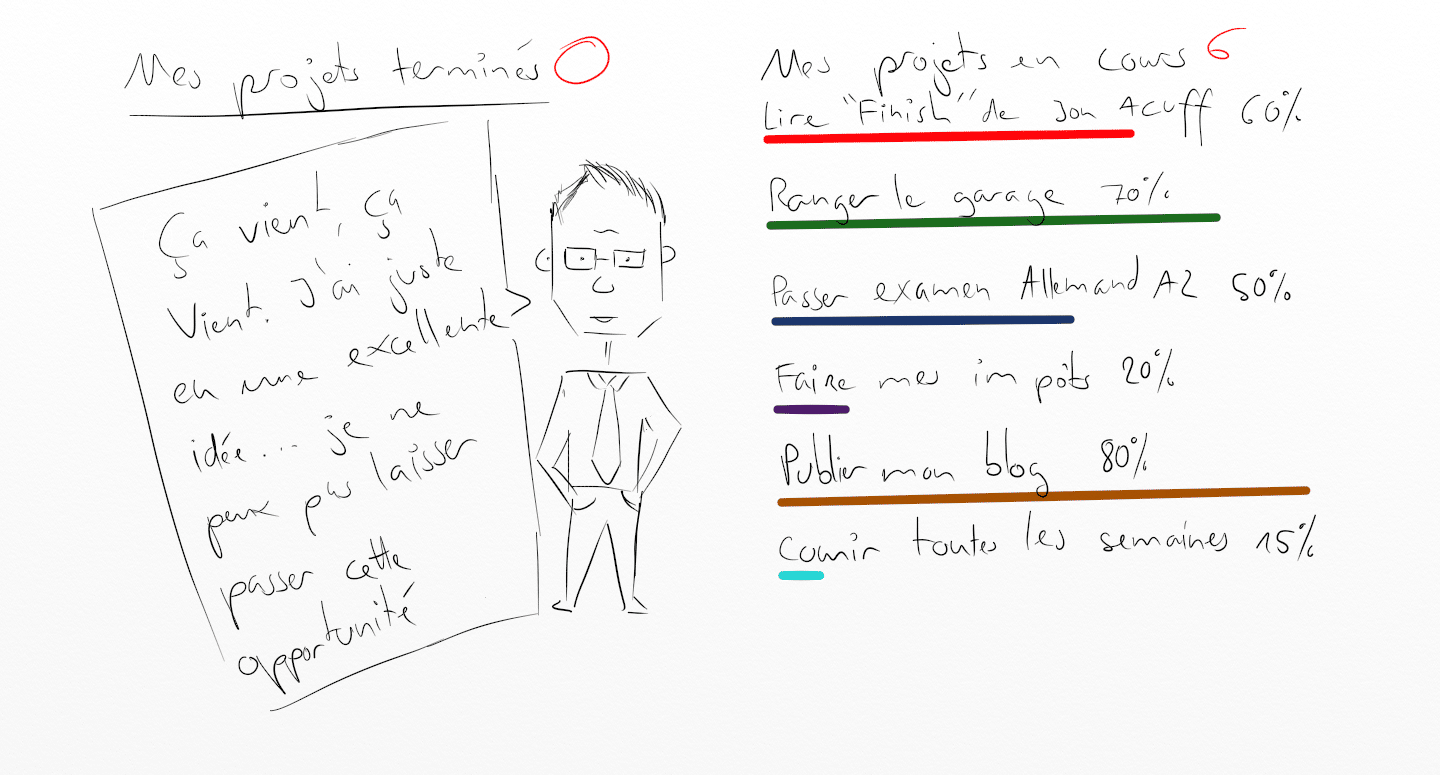 Mes projets terminés 0
Ça vient, ça
vient. J'ai juste
eu une excellente
idée... je ne
peux pas laisser
passer cette
opportunité
Mes projets en cours 6
Lire "Finish" de Jon Acuff 60%
Ranger le garage 70%
Passer examen Allemand A2 50%
Faire mes impôts 20%
Publier mon blog 80%
Courir toutes les semaines 15%